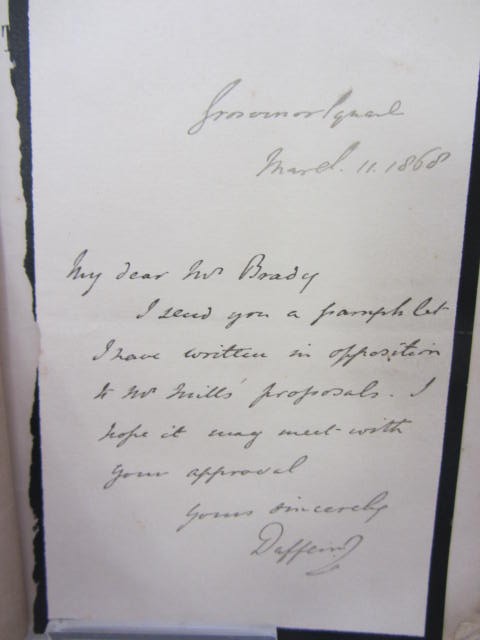 Grosvenor Square
March. 11. 1868
My dear Mr Brady
I send you a pamphlet
I have written in opposition
to Mr Mills' proposals. I
hope it may meet with
your approval
Yours sincerely
Dufferin